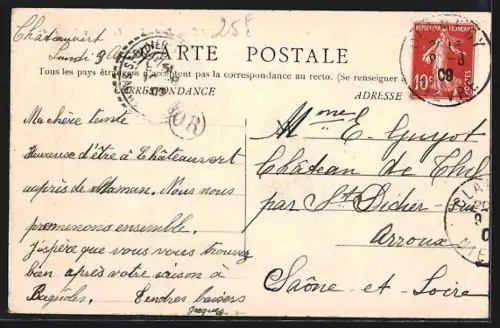 25F
Châteauvert
Lundi 9
CARTE POSTALE
Tous les pays étrangers n'acceptent pas la correspondance au recto. (Se renseigner à
CORRESPONDANCE
ADRESSE
REPUBLIQUE FRANÇAISE
10c
POSTES
09
OR
Ma chère tante
Heureuse d'être à Châteauvert
auprès de Maman. Nous nous
promenons ensemble.
J'espère que vous vous trouvez
bien après votre saison à
Bagnoles. Tendres baisers
Mme C. Guyot
Château de
par St Didier-sur
Arroux
Saône-et-Loire